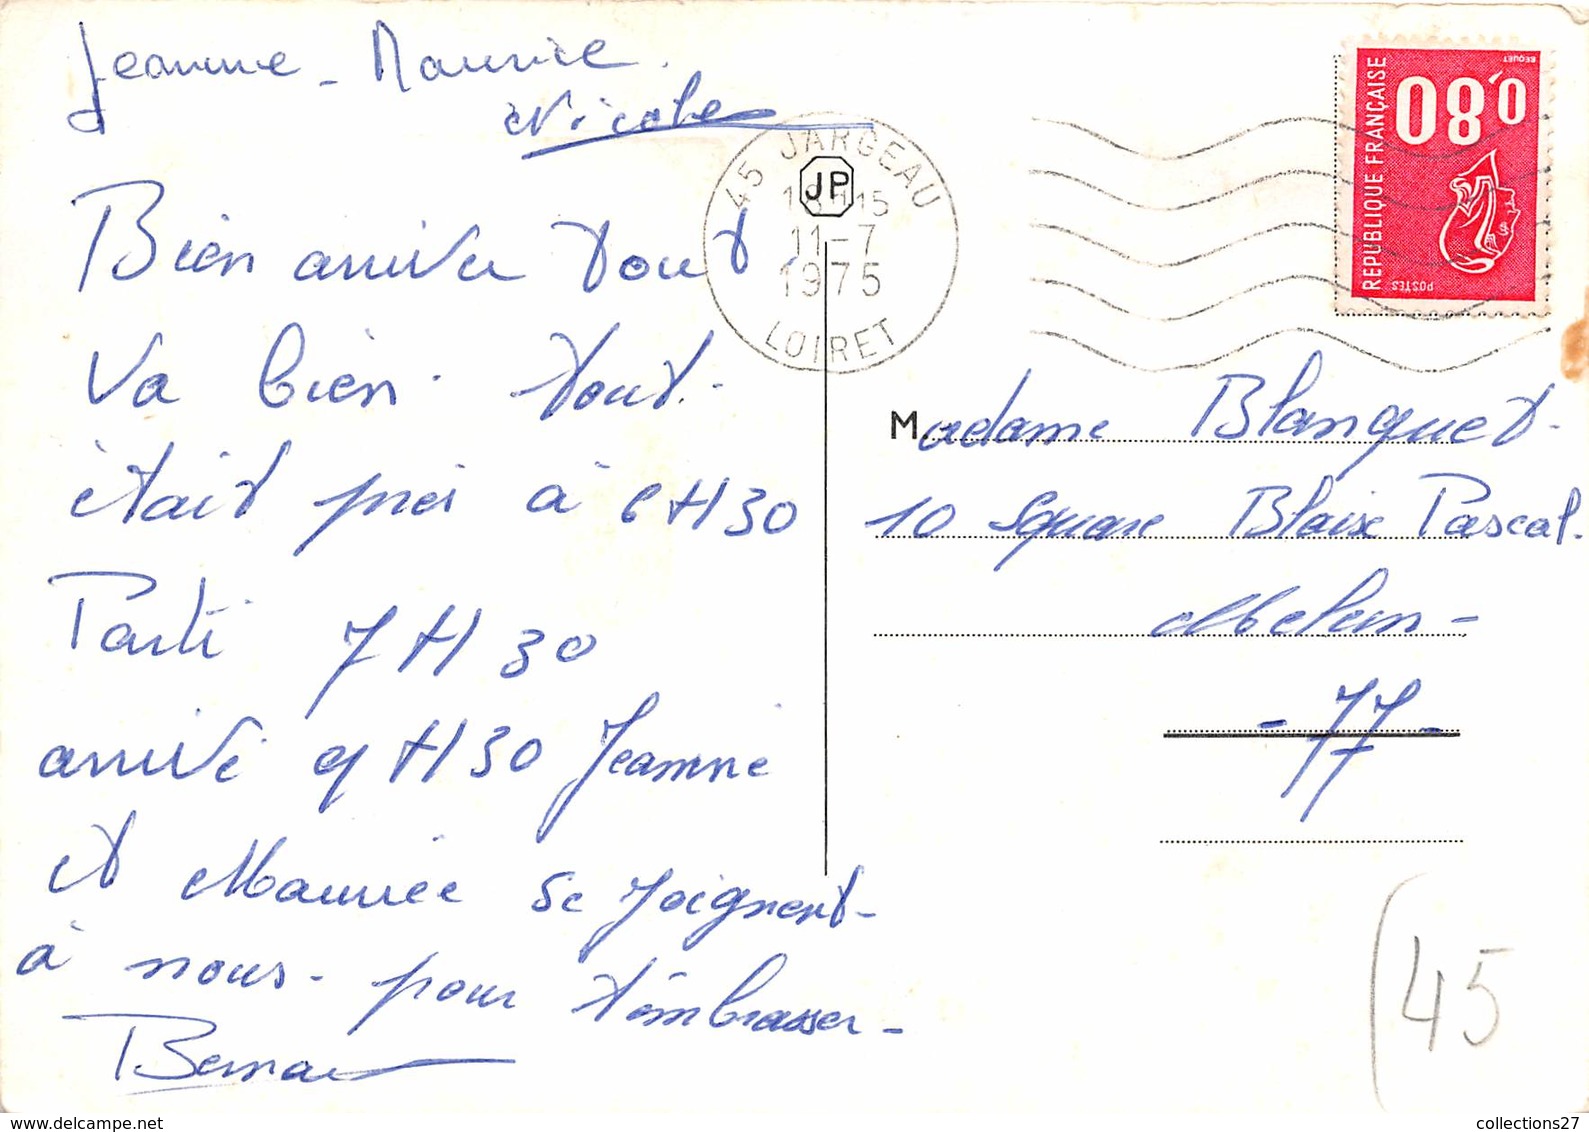 Jeanne - Maurice.
Nicole
Bien arriver tout
va bien. tout.
était prêt à 6H30
Parti 7H30
arrivé 9H30 Jeanne
et Maurice se joignent-
à nous. pour t'embrasser-
Bernard
45 JARGEAU
JP
18H15
11-7
1975
LOIRET
REPUBLIQUE FRANÇAISE
0,80
POSTES
BEQUET
Madame Blanquet.
10 Square Blaise Pascal.
Melun -
- 77 -
(45
collections27